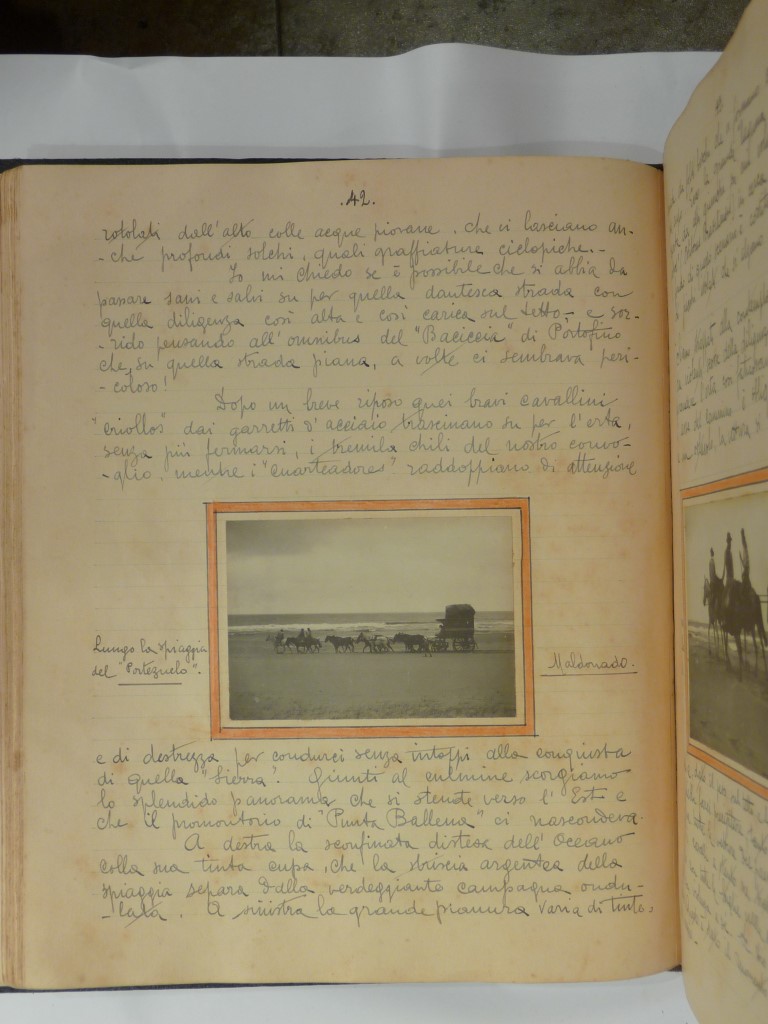 .42.
rotolati dall'alto colle acque piovane, che vi lasciano an-
-che profondi solchi, quali graffiature ciclopiche.-
Io mi chiedo se è possibile che si abbia da
passare sani e salvi su per quella dantesca strada con
quella diligenza così alta e così carica sul tetto,- e sor-
-rido pensando all'omnibus del "Baciccia" di Portofino
che, su quella strada piana, a volte ci sembrava peri-
-coloso!
Dopo un breve riposo quei bravi cavallini
"criollos" dai garretti d'acciaio trascinano su per l'erta,
senza più fermarsi, i tremila chili del nostro convo-
-glio, mentre i "cuarteadores" raddoppiano di attenzione
Lungo la spiaggia
del "Portezuelo".
Maldonado.
e di destrezza per condurci senza intoppi alla conquista
di quella "Sierra". Giunti al culmine scorgiamo
lo splendido panorama che si stende verso l'Est e
che il promontorio di "Punta Ballena" ci nascondeva.
A destra la sconfinata distesa dell'Oceano
colla sua tinta cupa, che la striscia argentea della
spiaggia separa dalla verdeggiante campagna ondu-
-lata. A sinistra la grande pianura varia di tinte,